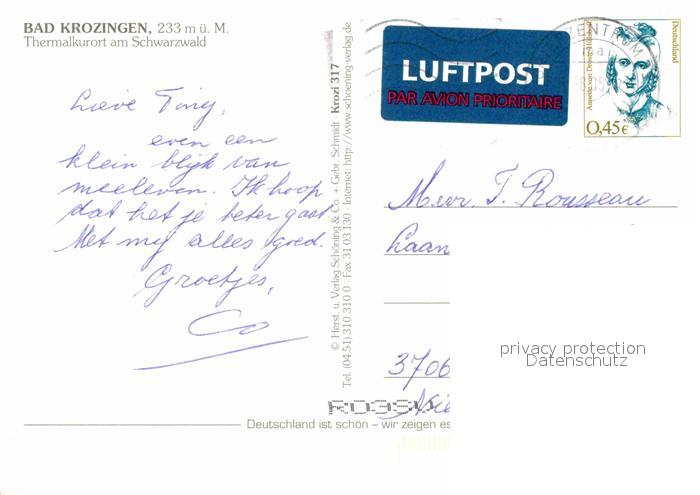 BAD KROZINGEN, 233 m ü. M.
Thermalkurort am Schwarzwald
Lieve Tiny,
even een
klein blijk van
meeleven. Ik hoop
dat het je beter gaat
Met mij alles goed.
Groetjes,
Co
© Herst. u. Verlag Schöning & Co. + Gebr. Schmidt · Krozi 317
Tel. (04 51) 310 310 0 · Fax 31 03 130 · Internet: http://www.schoening-verlag.de
LUFTPOST
PAR AVION PRIORITAIRE
ZENTRUM
Annette von Droste-Hülshoff
Deutschland
0,45€
Mevr. T. Rousseau
Laan
3706
privacy protection
Datenschutz
Deutschland ist schön – wir zeigen es